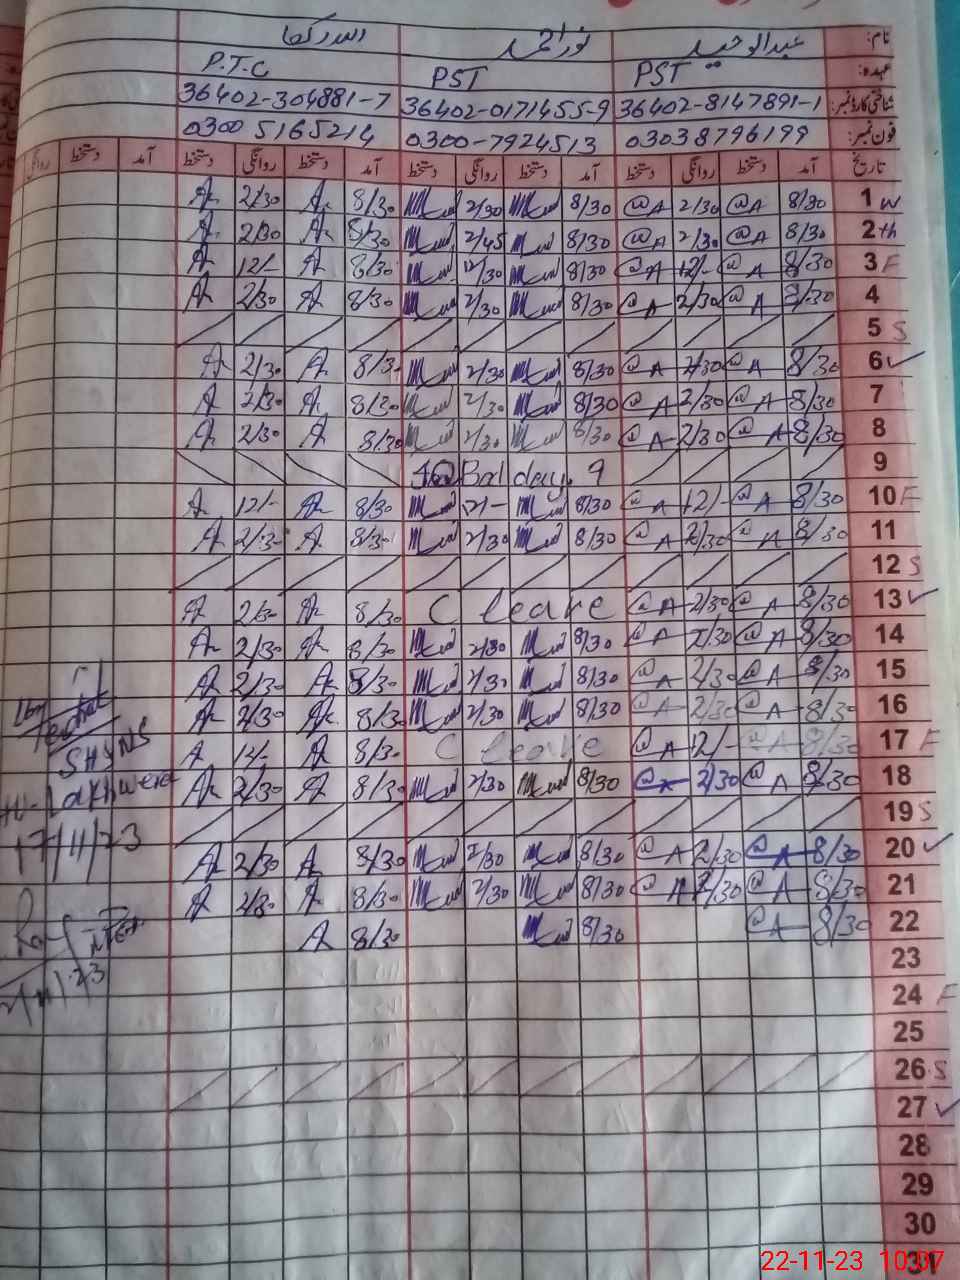 نام: عبدالوحید نور احمد اللہ رکھا
عہدہ: PST PST P.T.C
شناختی کارڈ نمبر: 36402-8147891-1 36402-0171455-9 36402-304881-7
فون نمبر: 03038796199 0300-7924513 0300 5165214
تاریخ آمد دستخط روانگی دستخط آمد دستخط روانگی دستخط آمد دستخط روانگی دستخط آمد دستخط روانگی
1 W 8/30 @A 2/30 @A 8/30 2/30 8/30 A 2/30 A
2 th 8/30 @A 2/30 @A 8/30 2/45 8/30 A 2/30 A
3 F 8/30 @A 12/- @A 8/30 12/30 8/30 A 12/- A
4 8/30 @A 2/30 @A 8/30 2/30 8/30 A 2/30 A
5 S
6 ✓ 8/30 @A 2/30 @A 8/30 2/30 8/30 A 2/30 A
7 8/30 @A 2/30 @A 8/30 2/30 8/30 A 2/30 A
8 8/30 @A 2/30 @A 8/30 2/30 8/30 A 2/30 A
9 day 9
10 F 8/30 @A 12/- @A 8/30 12/- 8/30 A 12/- A
11 8/30 @A 2/30 @A 8/30 2/30 8/30 A 2/30 A
12 S
13 ✓ 8/30 @A 2/30 @A C leave 8/30 A 2/30 A
14 8/30 @A 2/30 @A 8/30 2/30 8/30 A 2/30 A
15 8/30 @A 2/30 @A 8/30 2/30 8/30 A 2/30 A
16 8/30 @A 2/30 @A 8/30 2/30 8/30 A 2/30 A
17 F 8/30 @A 12/- @A C leave 8/30 A 12/- A
18 8/30 @A 2/30 @A 8/30 2/30 8/30 A 2/30 A
19 S
20 ✓ 8/30 @A 2/30 @A 8/30 2/30 8/30 A 2/30 A
21 8/30 @A 2/30 @A 8/30 2/30 8/30 A 2/30 A
22 8/30 @A 8/30 8/30 A
23
24 F
25
26 S
27 ✓
28
29
30
31
17/11/23
22-11-23 10:07